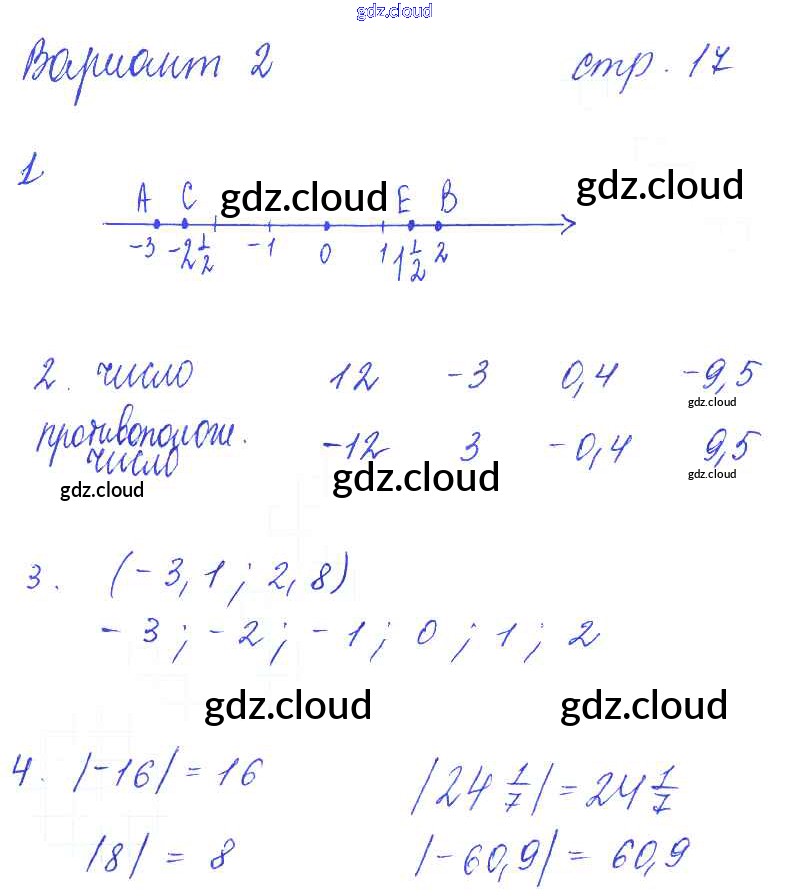 gdz.cloud
Вариант 2 стр. 17
1
A C gdz.cloud E B gdz.cloud
-3 -2 1/2 -1 0 1 1 1/2 2
2. число 12 -3 0,4 -9,5
gdz.cloud
противополож. -12 3 -0,4 9,5
число
gdz.cloud gdz.cloud gdz.cloud
3. (-3,1; 2,8)
-3; -2; -1; 0; 1; 2
gdz.cloud gdz.cloud
4. |-16| = 16 |24 1/7| = 24 1/7
|8| = 8 |-60,9| = 60,9